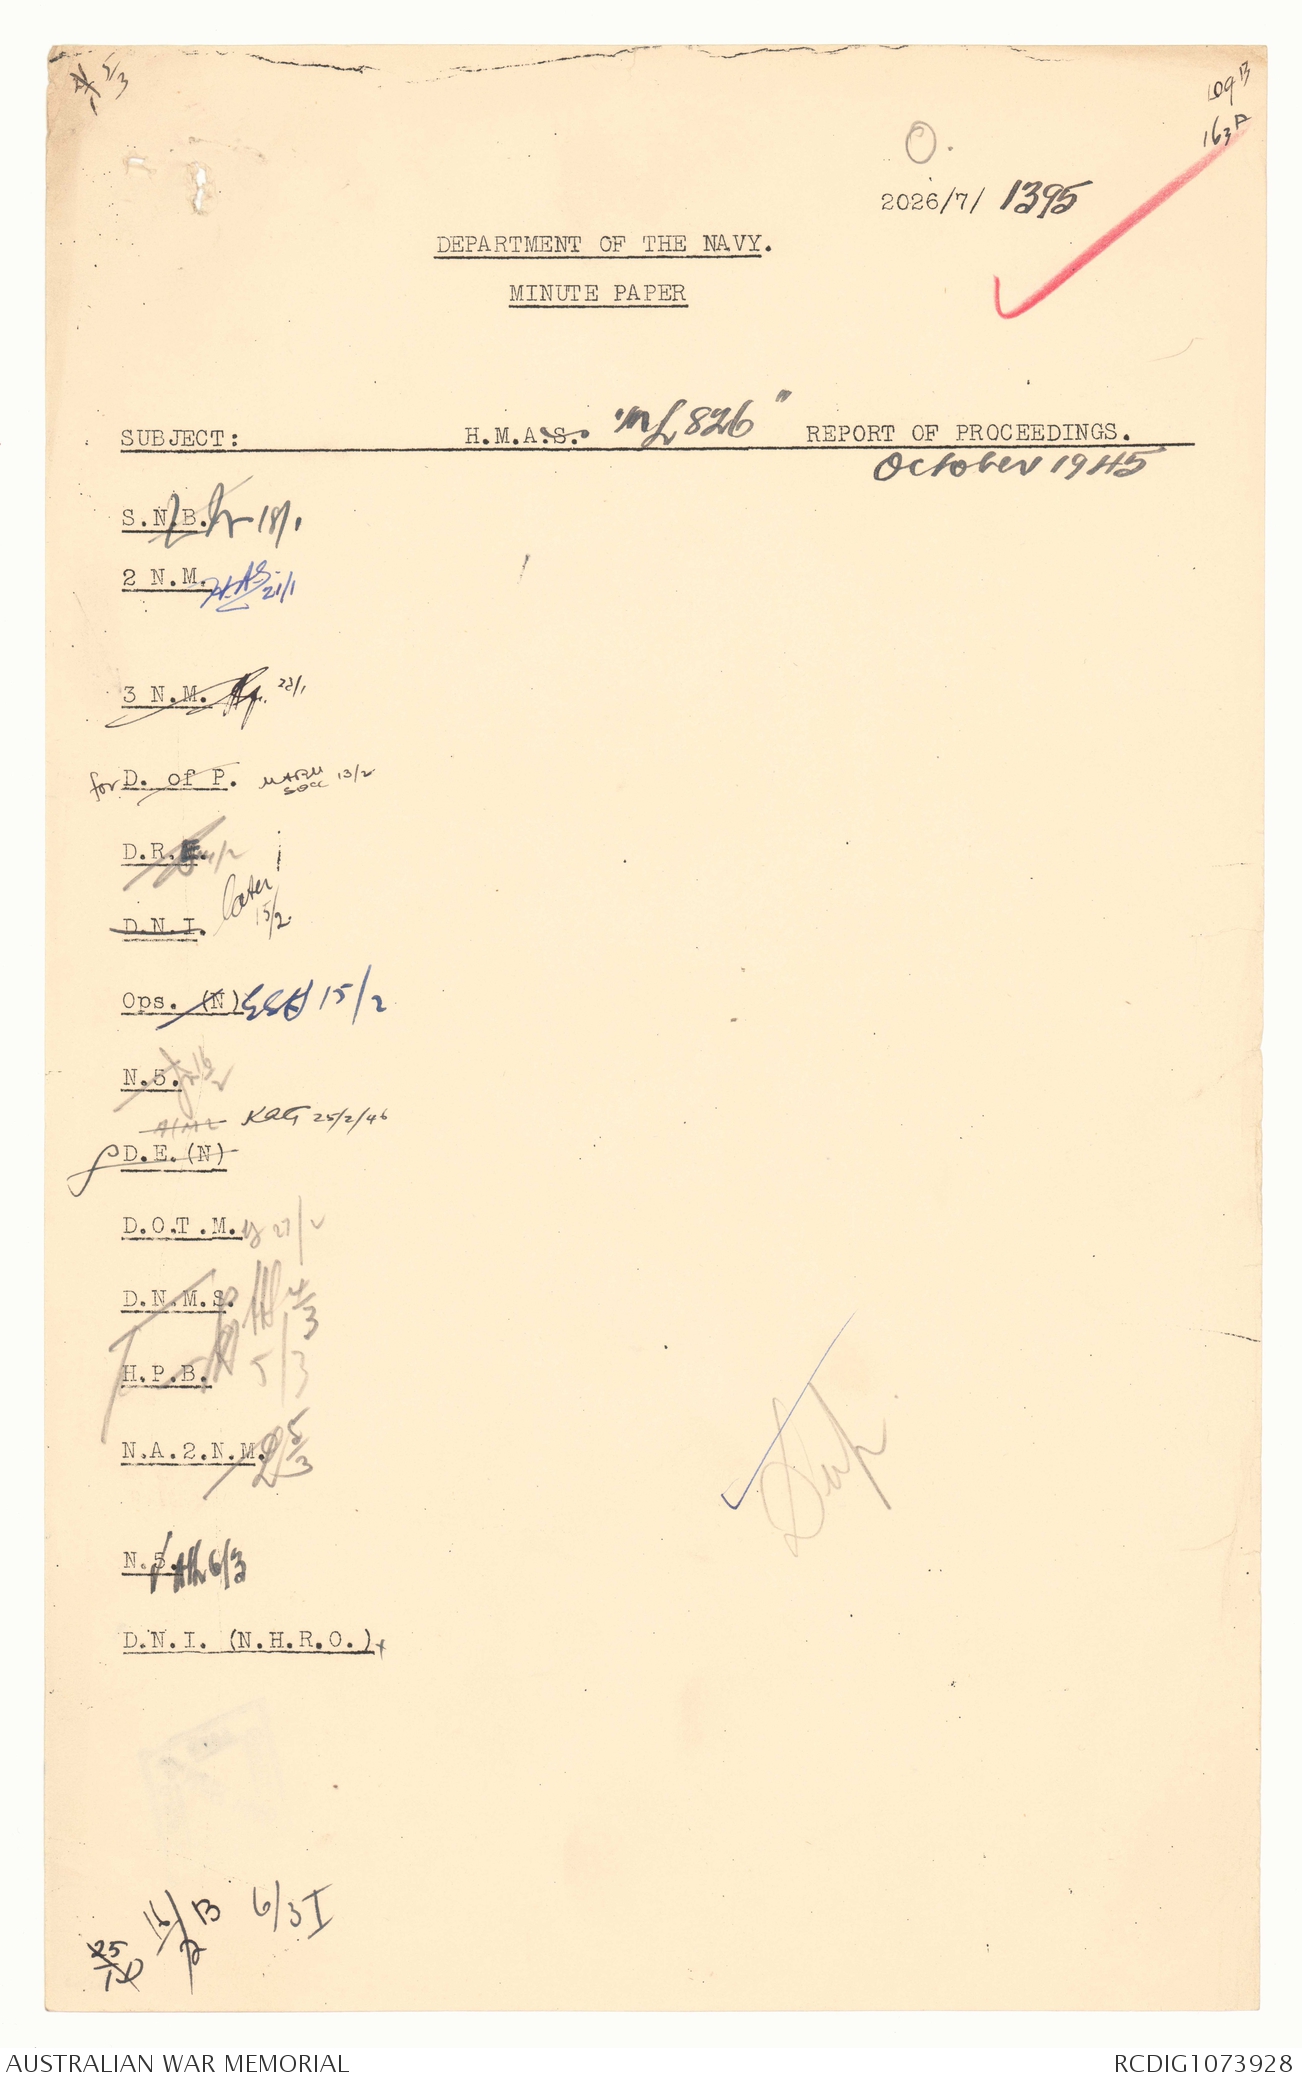 109B
163A
O.
2026/7/ 1395
DEPARTMENT OF THE NAVY.
MINUTE PAPER
SUBJECT: H.M.A.S. "ML 826" REPORT OF PROCEEDINGS.
October 1945
S.N.B. 18/1
2 N.M. 21/1
3 N.M. 22/1
for D. of P. 13/2
D.R.E.
later!
D.N.I. 15/2
Ops. (N) 15/2
N.5.
25/2/46
D.E.(N)
D.O.T.M. 27/2
D.N.M.S. 4/3
H.P.B. 5/3
N.A.2.N.M. 5/3
N.5. 6/3
D.N.I. (N.H.R.O.)
16/2 B 6/3 I
25/1
AUSTRALIAN WAR MEMORIAL RCDIG1073928